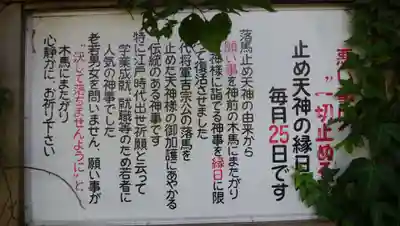 一切止める
止め天神の縁日
毎月25日です
落馬止め天神の由来から
願い事を神前の木馬にまたがり
神様に詣でる神事を縁日に限
て復活させました
代将軍吉宗公の落馬を
止めた天神様の御加護にあやかる
伝統のある神事です
特に江戸時代出世祈願と云って
学業成就、就職等のため若者に
人気の神事でした
老若男女を問いません、願い事が
"決して落ちませんように"と
木馬にまたがり
心静かに、お祈り下さい